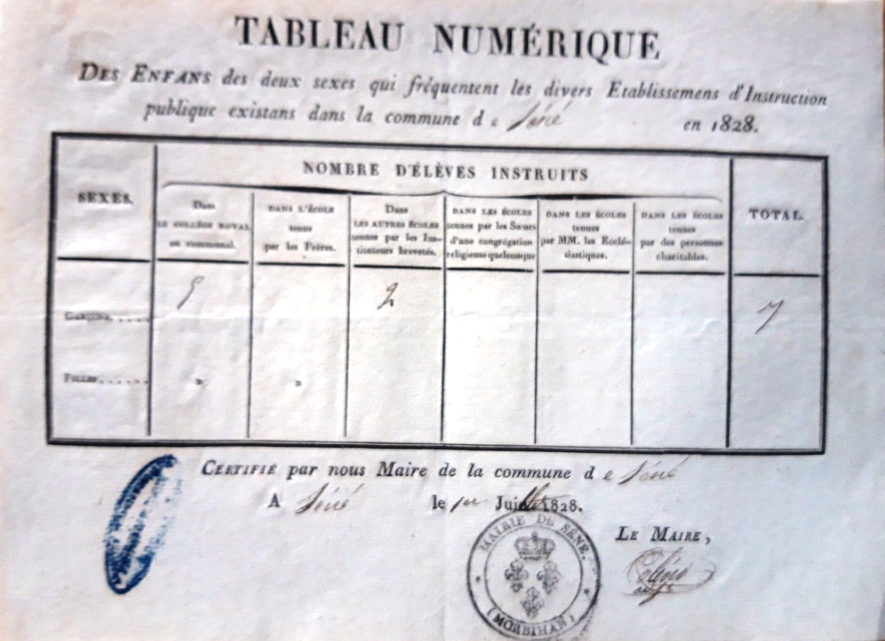 TABLEAU NUMÉRIQUE
DES ENFANS des deux sexes qui fréquentent les divers Etablissemens d'Instruction
publique existans dans la commune d e Séné en 1828.
SEXES.
NOMBRE D'ÉLÈVES INSTRUITS
TOTAL.
Dans
LE COLLÈGE ROYAL
ou communal.
DANS L'ÉCOLE
tenue
par les Frères.
Dans
LES AUTRES ÉCOLES
tenues par les Ins-
tituteurs brevetés.
DANS LES ÉCOLES
tenues par les Sœurs
d'une congrégation
religieuse quelconque
DANS LES ÉCOLES
tenues
par MM. les Ecclé-
siastiques.
DANS LES ÉCOLES
tenues
par des personnes
charitables.
GARÇONS..... 5 2 7
FILLES...... » »
CERTIFIÉ par nous Maire de la commune d e Séné
A Séné le 1er 1828.
LE MAIRE,
MAIRIE DE SÉNÉ.
(MORBIHAN)